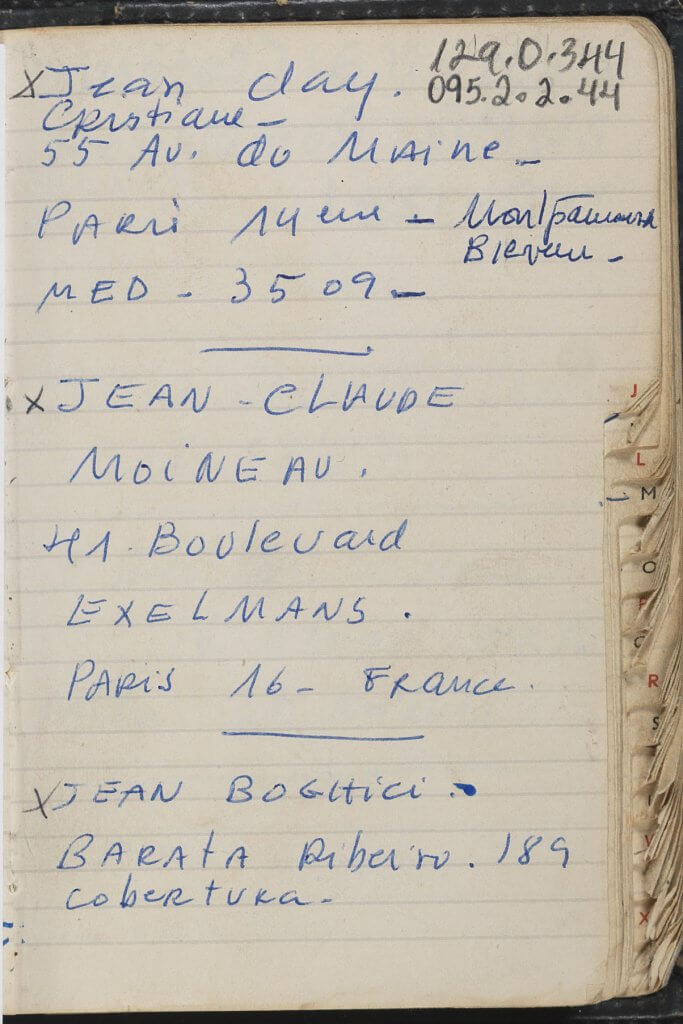 129.0.344
095.2.2.44
X Jean clay.
Cristiane -
55 Av. do Maine -
PARis 14 eme -
MED - 3509 -
X JEAN - CLAUDE
MOiNEAU.
41. Boulevard
EXELMANS.
PARiS 16 - France.
X JEAN BOGHici.
BARAtA Ribeiro. 189
cobertura -
J
L
M
O
P
R
S
V
X